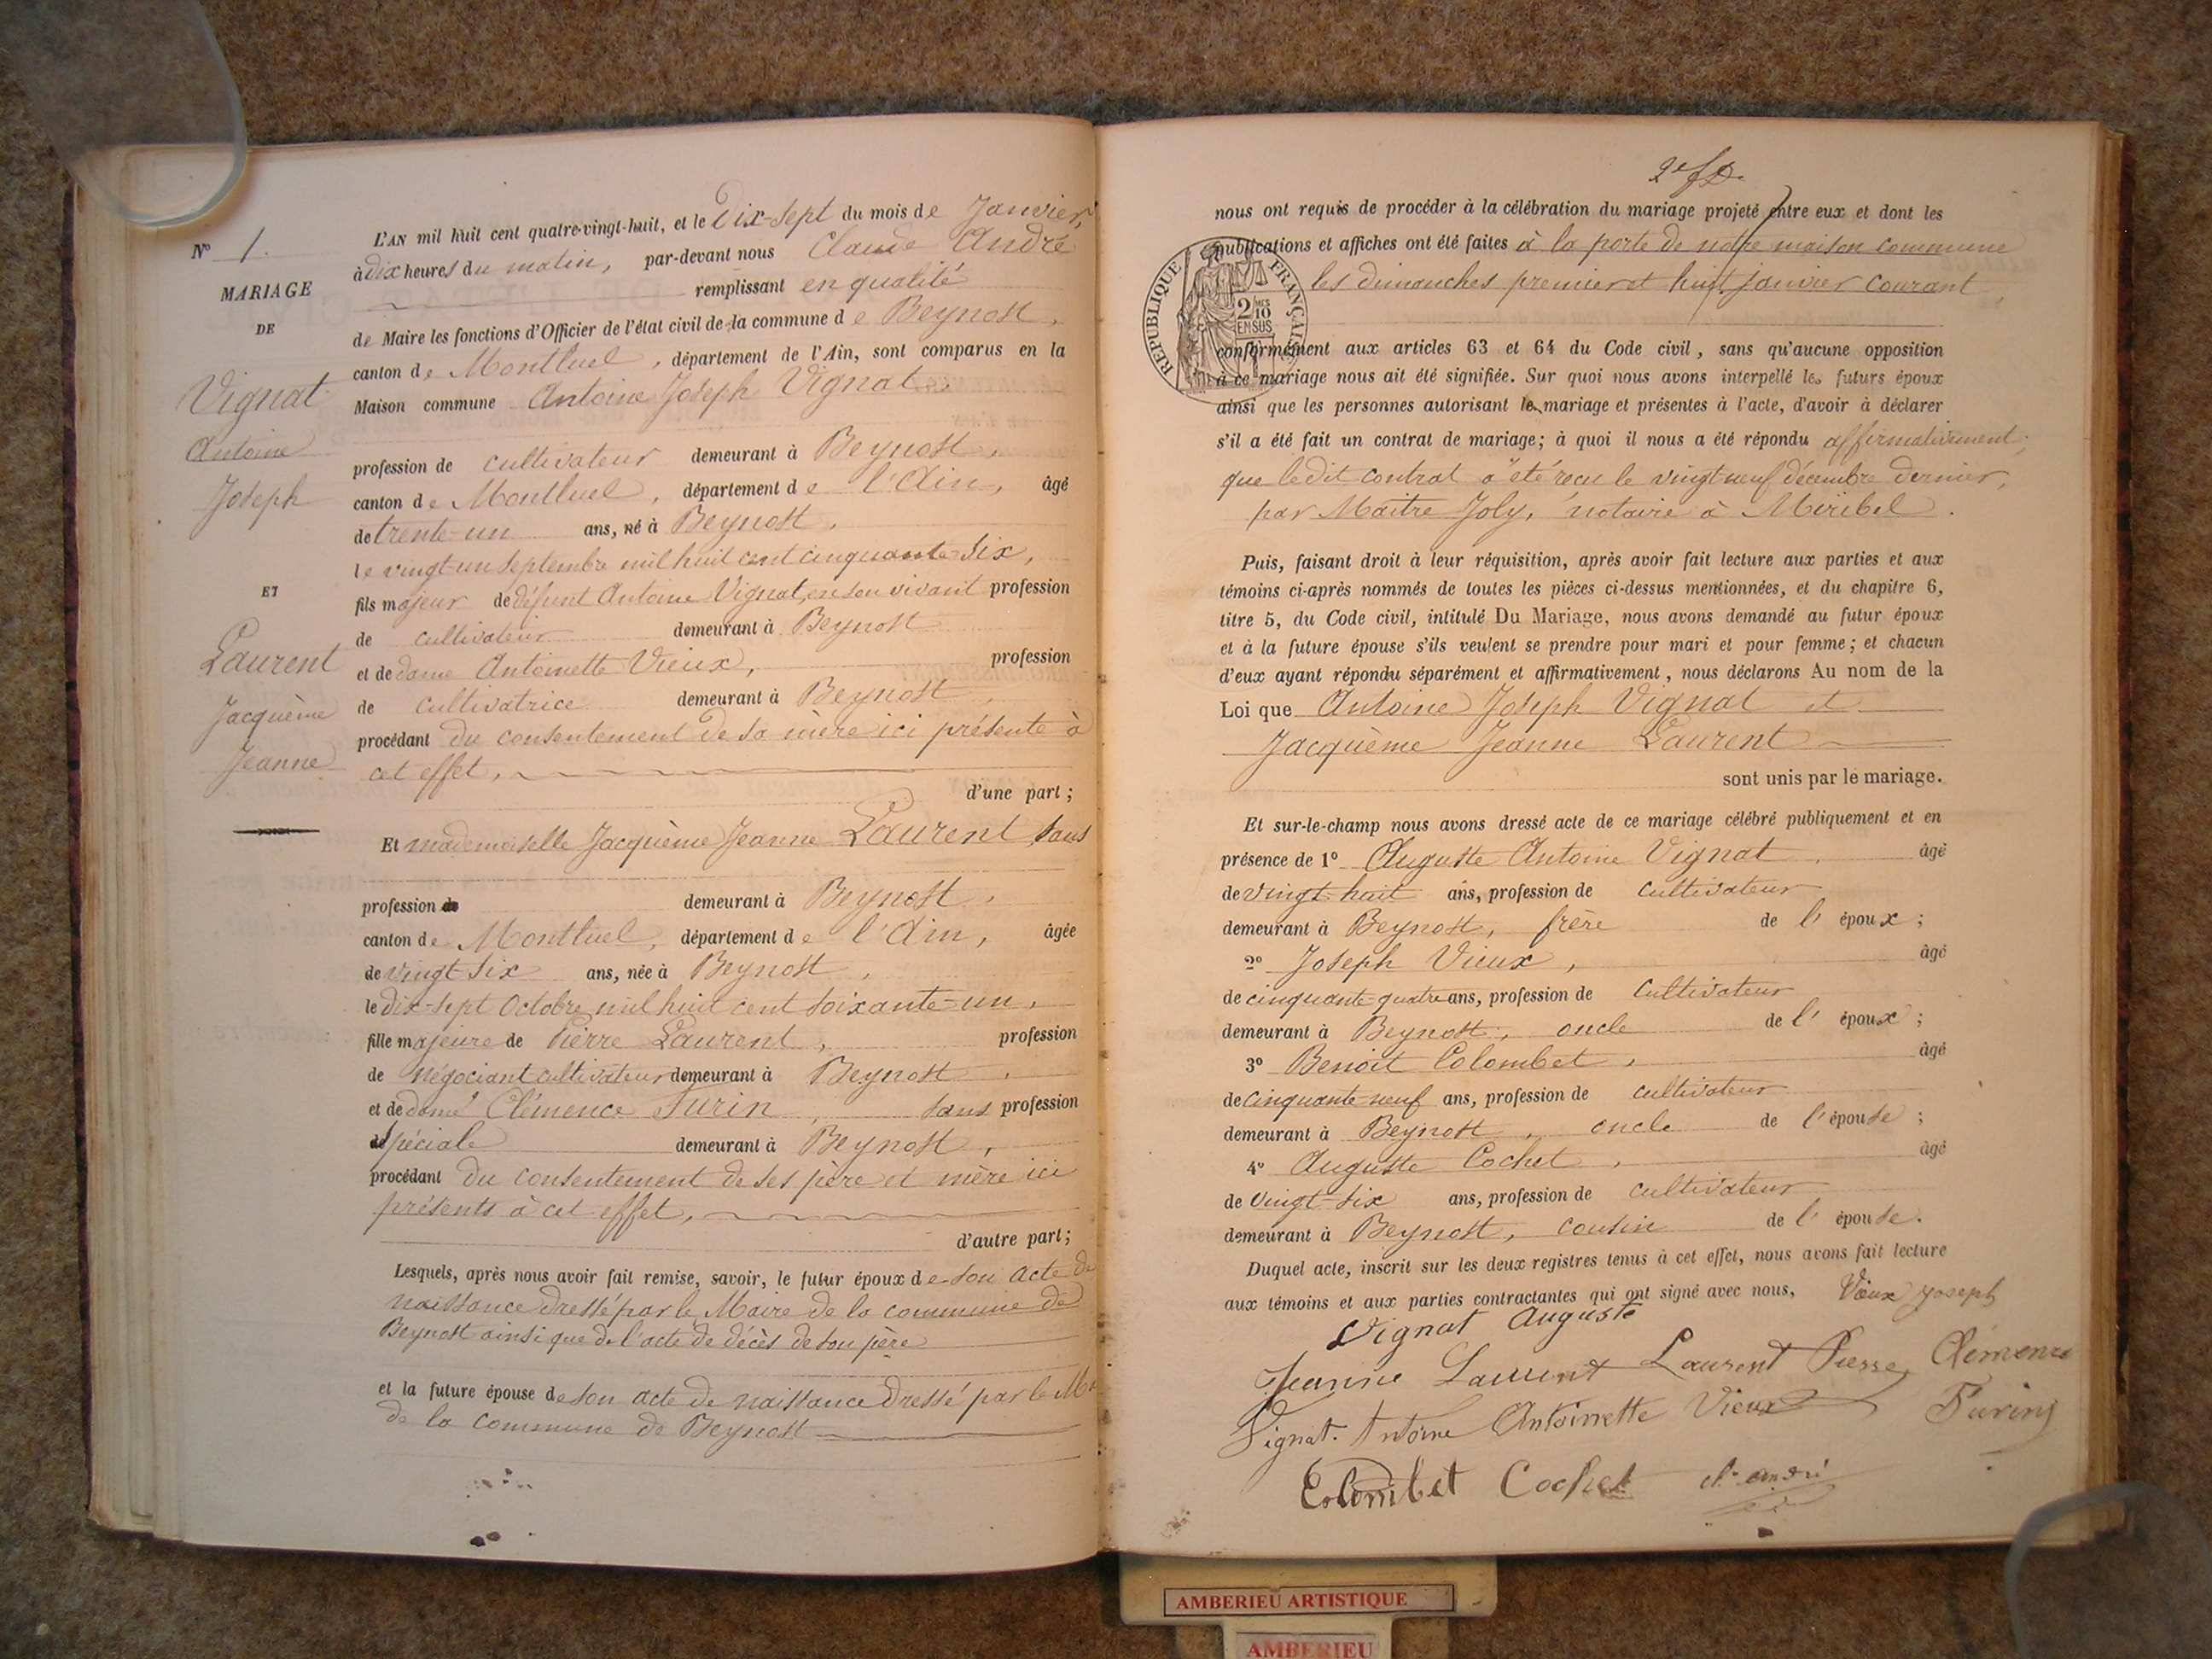 N° 1.
MARIAGE
DE
Vignat
Antoine
Joseph
ET
Laurent
Jacquème
Jeanne
L'AN mil huit cent quatre-vingt-huit, et le Dix-Sept du mois de Janvier,
à dix heures du matin, par-devant nous Claude André
remplissant en qualité
de Maire les fonctions d'Officier de l'état civil de la commune de Beynost,
canton de Montluel, département de l'Ain, sont comparus en la
Maison commune Antoine Joseph Vignat
profession de cultivateur demeurant à Beynost,
canton de Montluel, département de l'Ain, âgé
de trente-un ans, né à Beynost,
le vingt-un septembre mil huit cent cinquante Six,
fils majeur de défunt Antoine Vignat, en son vivant profession
de cultivateur demeurant à Beynost
et de dame Antoinette Vieux, profession
de cultivatrice demeurant à Beynost,
procédant du consentement de sa mère ici présente à
cet effet,
d'une part ;
Et mademoiselle Jacquème Jeanne Laurent, sans
profession de demeurant à Beynost,
canton de Montluel, département de l'Ain, âgée
de vingt-six ans, née à Beynost,
le dix-sept Octobre mil huit cent soixante-un,
fille majeure de Pierre Laurent, profession
de négociant cultivateur demeurant à Beynost,
et de dame Clémence Turin, sans profession
spéciale demeurant à Beynost,
procédant du consentement de ses père et mère ici
présents à cet effet,
d'autre part ;
Lesquels, après nous avoir fait remise, savoir, le futur époux de son acte de
naissance dressé par le Maire de la commune de
Beynost ainsi que de l'acte de décès de son père
et la future épouse de son acte de naissance dressé par le M
de la commune de Beynost
nous ont requis de procéder à la célébration du mariage projeté entre eux et dont les
publications et affiches ont été faites à la porte de notre maison commune
les dimanches premier et huit janvier courant,
RÉPUBLIQUE FRANÇAISE
2 MES
10
EN SUS
conformément aux articles 63 et 64 du Code civil, sans qu'aucune opposition
à ce mariage nous ait été signifiée. Sur quoi nous avons interpellé les futurs époux
ainsi que les personnes autorisant le mariage et présentes à l'acte, d'avoir à déclarer
s'il a été fait un contrat de mariage ; à quoi il nous a été répondu affirmativement,
que ledit contrat a été reçu le vingt neuf décembre dernier,
par Maître Joly, notaire à Miribel.
Puis, faisant droit à leur réquisition, après avoir fait lecture aux parties et aux
témoins ci-après nommés de toutes les pièces ci-dessus mentionnées, et du chapitre 6,
titre 5, du Code civil, intitulé Du Mariage, nous avons demandé au futur époux
et à la future épouse s'ils veulent se prendre pour mari et pour femme ; et chacun
d'eux ayant répondu séparément et affirmativement, nous déclarons Au nom de la
Loi que Antoine Joseph Vignat et
Jacquème Jeanne Laurent
sont unis par le mariage.
Et sur-le-champ nous avons dressé acte de ce mariage célébré publiquement et en
présence de 1° Auguste Antoine Vignat, âgé
de vingt-huit ans, profession de cultivateur
demeurant à Beynost, frère de l'époux ;
2° Joseph Vieux, âgé
de cinquante-quatre ans, profession de cultivateur
demeurant à Beynost, oncle de l'époux ;
3° Benoit Colombet, âgé
de cinquante-neuf ans, profession de cultivateur
demeurant à Beynost, oncle de l'épouse ;
4° Auguste Cochet, âgé
de vingt-six ans, profession de cultivateur
demeurant à Beynost, cousin de l'épouse.
Duquel acte, inscrit sur les deux registres tenus à cet effet, nous avons fait lecture
aux témoins et aux parties contractantes qui ont signé avec nous, Vieux Joseph
Vignat Auguste
Jeanne Laurent Laurent Pierre Clémence
Vignat Antoine Antoinette Vieux Turin
Colombet Cochet Cl. andré
AMBERIEU ARTISTIQUE
AMBERIEU